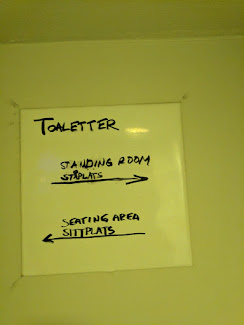 TOALETTER
STANDING ROOM
STÅPLATS
SEATING AREA
SITTPLATS